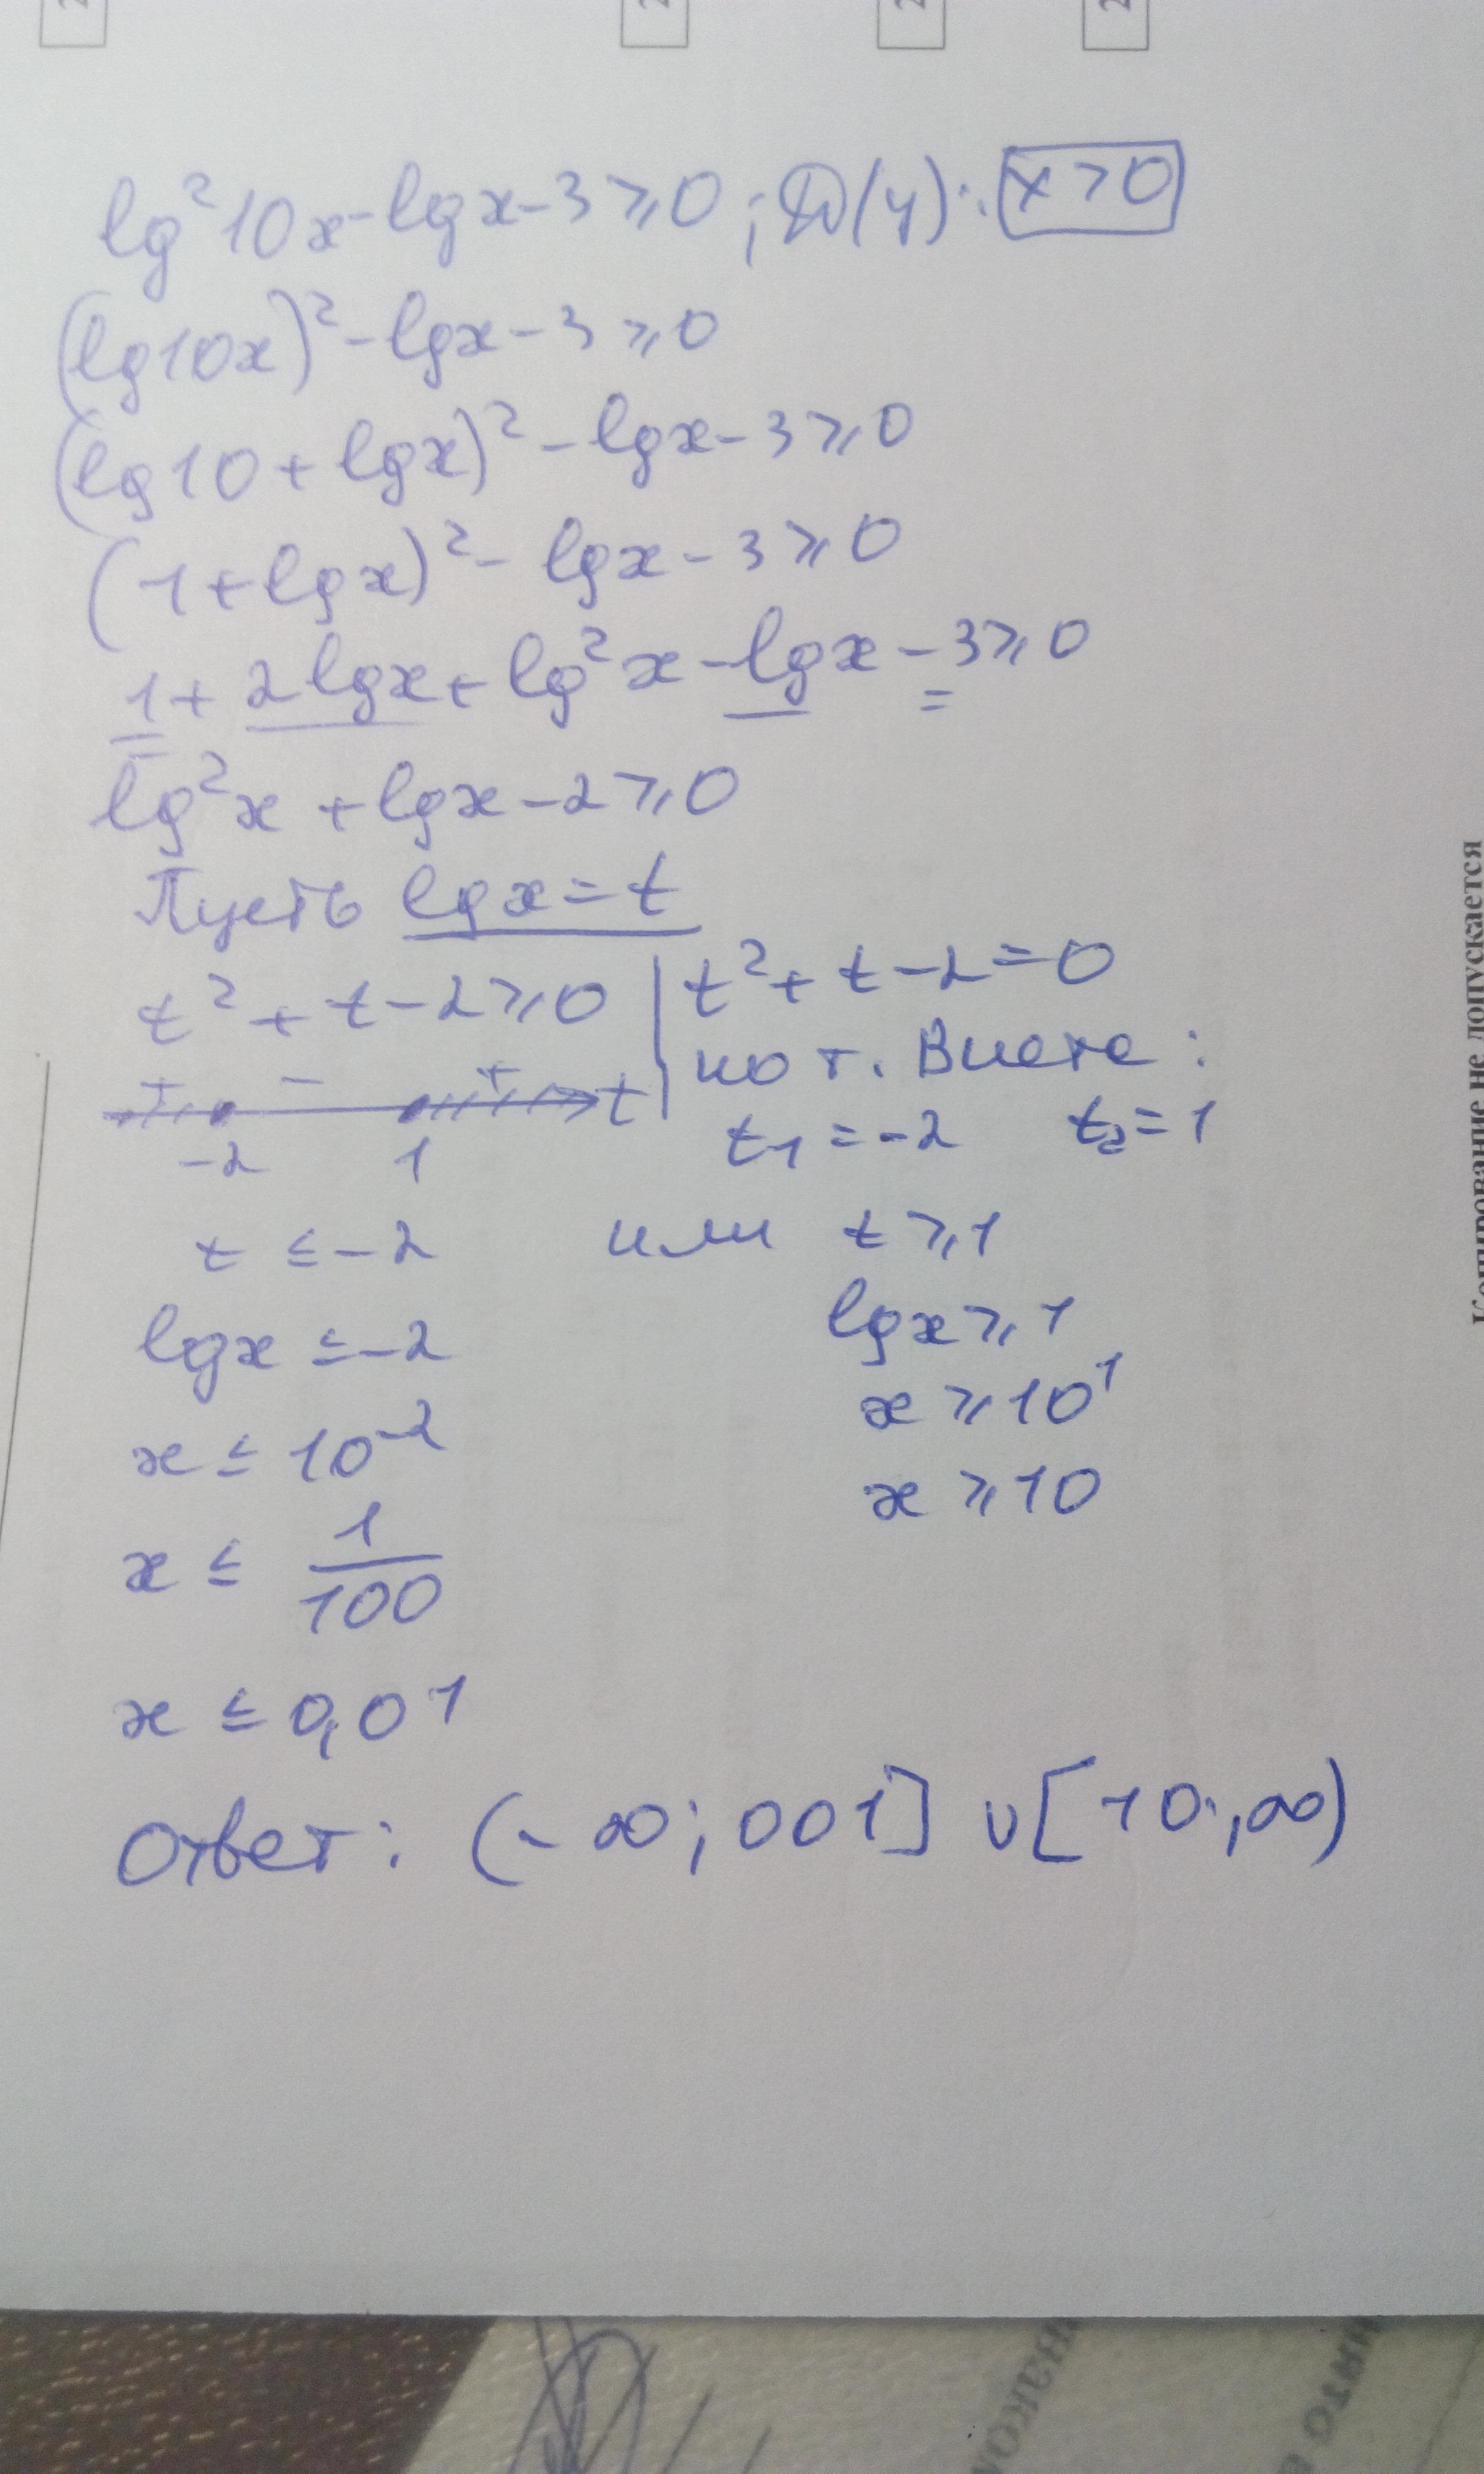 lg²10x - lgx - 3 ⩾ 0 ; D(y): x > 0
(lg10x)² - lgx - 3 ⩾ 0
(lg10 + lgx)² - lgx - 3 ⩾ 0
(1 + lgx)² - lgx - 3 ⩾ 0
1 + 2lgx + lg²x - lgx - 3 ⩾ 0
lg²x + lgx - 2 ⩾ 0
Пусть lgx = t
t² + t - 2 ⩾ 0 | t² + t - 2 = 0
по т. Виета:
+ - + t
-2 1
t₁ = -2 t₂ = 1
t ≤ -2 или t ⩾ 1
lgx ≤ -2 lgx ⩾ 1
x ≤ 10⁻² x ⩾ 10¹
x ≤ 1/100 x ⩾ 10
x ≤ 0,01
Ответ: (-∞; 001] ∪ [10; ∞)
Копирование не допускается